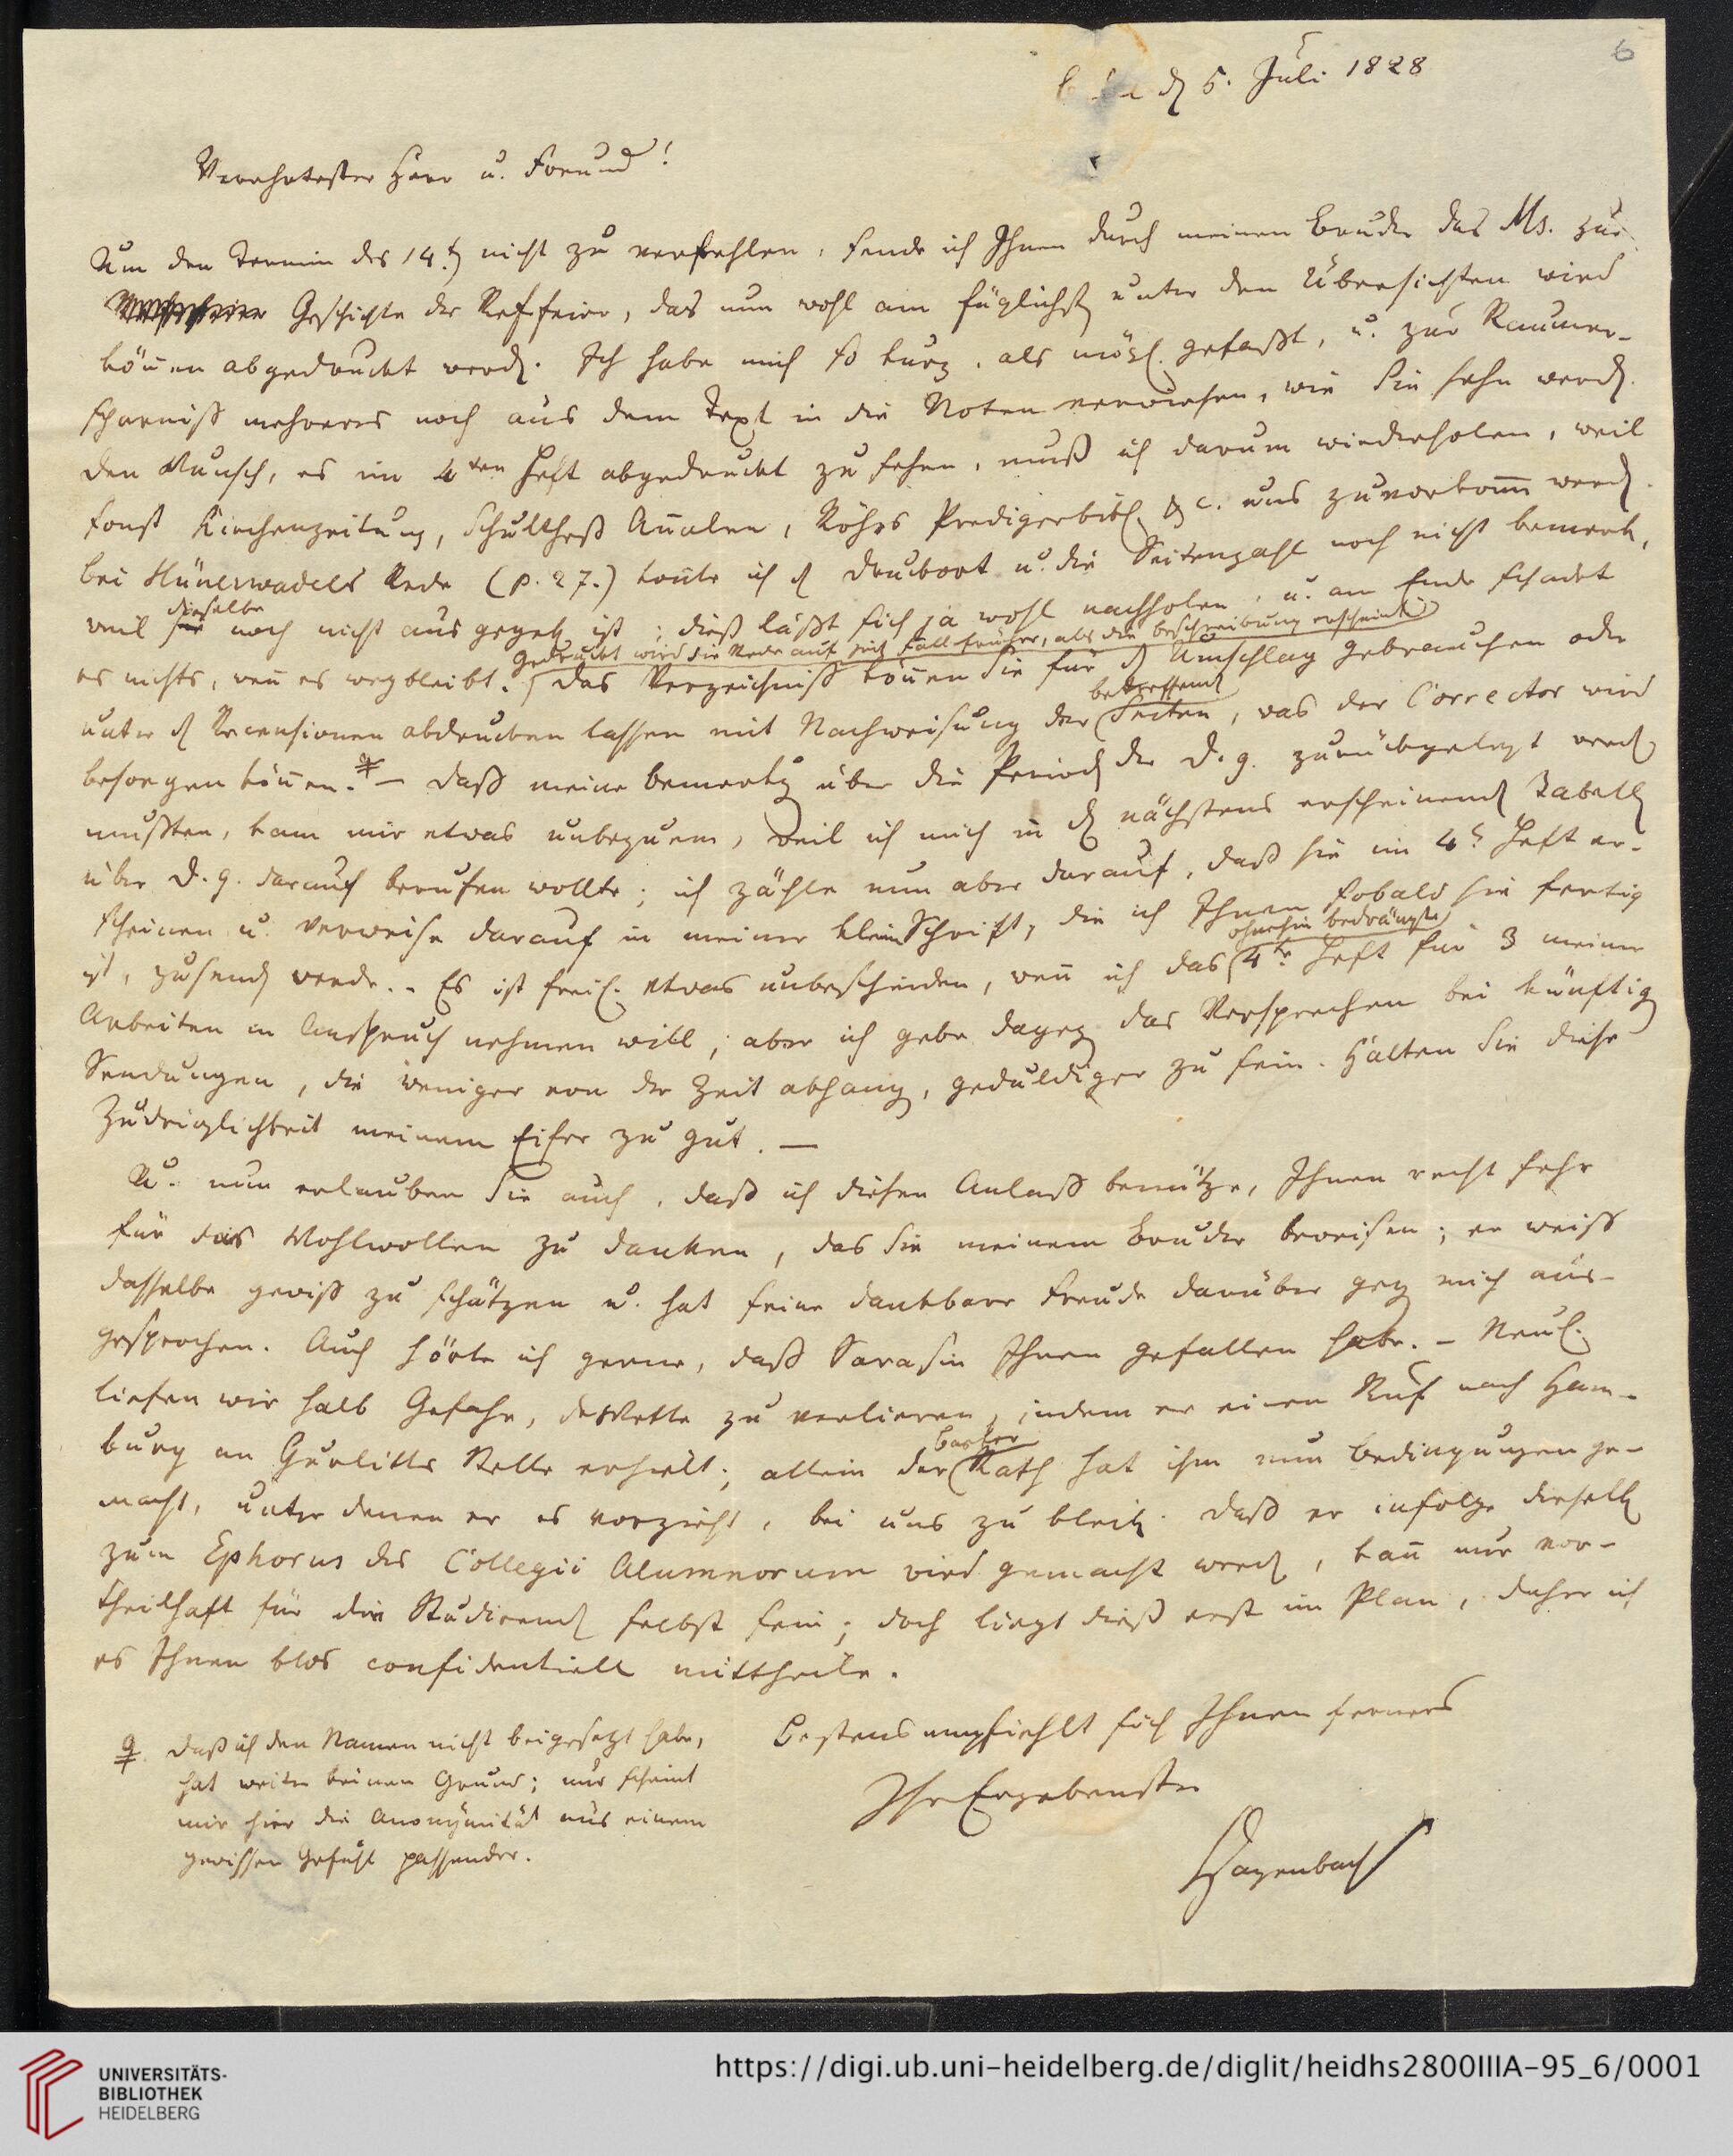 6
d. 5. Juli 1828
Verehrtester Herr u. Freund!
Um den Termin des 14t. nicht zu verfehlen, sende ich Ihnen durch meinen Bruder das Ms. zur
Geschichte der Ref.feier, das nun wohl am füglichst. unter den Übersichten wird
können abgedruckt werd. Ich habe mich so kurz, als mögl. gefaßt, u. zur Raumer-
sparniß mehreres noch aus dem Text in die Noten verwiesen, wie Sie sehn werd.
Den Wunsch, es im 4ten Heft abgedruckt zu sehen, muß ich darum wiederholen, weil
sonst Kirchenzeitung, Schultheß Annalen, Röhrs Predigerbibl. &c. uns zuvorkomm werd.
Bei Hünerwadels Rede (p. 27.) konnte ich d. Druckort u. die Seitenzahl noch nicht bemerk.,
weil dieselbe noch nicht ausgegeb. ist; dieß läßt sich ja wohl nachholen, u. am Ende schadet
es nichts, wenn es wegbleibt. (Gedruckt wird die Rede auf jed. Fall früher, als die Beschreibung erscheint.) Das Verzeichniß können Sie für d. Umschlag gebrauchen oder
unter d. Recensionen abdrucken lassen mit Nachweisung der betreffend. Seiten, was der Corrector wird
besorgen können.* – Daß meine Bemerkg. über die Period. der D.g. zurückgelegt werd.
mußten, kam mir etwas unbequem, weil ich mich in d. nächstens erscheinend. Tabell.
über D.g. darauf berufen wollte; ich zähle nun aber darauf, daß sie im 4t. Heft er-
scheinen u. verweise darauf in meiner klein. Schrift, die ich Ihnen sobald sie fertig
ist, zusend. werde. – Es ist freil. etwas unbescheiden, wenn ich das ohnehin bedrängte 4te Heft für 3 meiner
Arbeiten in Anspruch nehmen will; aber ich gebe dageg. das Versprechen bei künftig.
Sendungen, die weniger von der Zeit abhang., geduldiger zu sein. Halten Sie diese
Zudringlichkeit meinem Eifer zu gut. –
U. nun erlauben Sie auch, daß ich diesen Anlaß benütze, Ihnen recht sehr
für das Wohlwollen zu danken, das Sie meinem Bruder beweisen; er weiß
dasselbe gewiß zu schätzen u. hat seine dankbare Freude darüber geg. mich aus-
gesprochen. Auch hörte ich gerne, daß Sarasin Ihnen gefallen habe. – Neul.
liefen wir halb Gefahr, deWette zu verlieren, indem er einen Ruf nach Ham-
burg an Gurlitts Stelle erhielt; allein der Basler Rath hat ihm nun Bedingungen ge-
macht, unter denen er es vorzieht, bei uns zu bleib. Daß er infolge dieselb.
zum Ephorus des Collegii Alumnorum wird gemacht werd., kann nur vor-
theilhaft für die Studirend. selbst sein; doch liegt dieß erst im Plan, daher ich
es Ihnen blos confidentiell mittheile.
Bestens empfiehlt sich Ihnen ferners
Ihr Ergebenster
Hagenbach
*. Daß ich den Namen nicht beigesetzt habe,
hat weiter keinen Grund; nur scheint
mir hier die Anonymität aus einem
gewissen Gefühl passender.
UNIVERSITÄTS-
BIBLIOTHEK
HEIDELBERG
https://digi.ub.uni-heidelberg.de/diglit/heidhs2800IIIA-95_6/0001